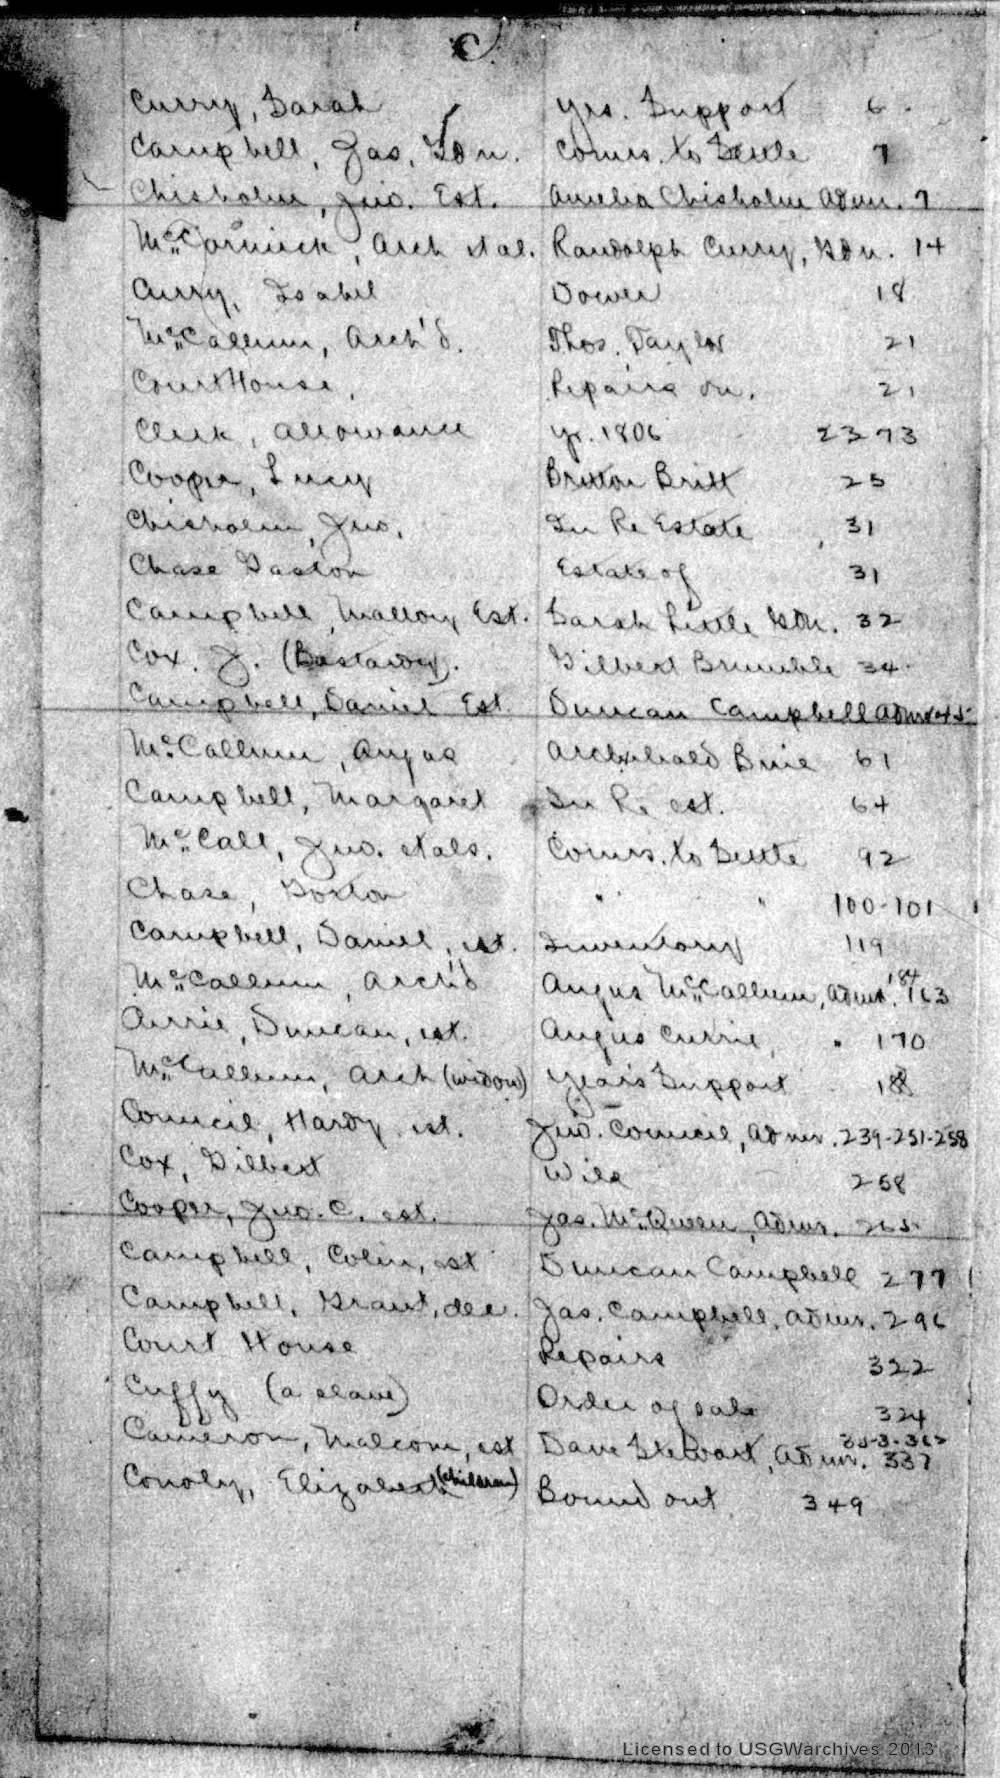 C
Curry, Sarah yrs. Support 6
Campbell, Jas, Gdn. Comrs. to Settle 7
Chisholm, Jno. Est. Amelia Chisholm Admr. 7
McCormick, Arch et al. Randolph Curry, Gdn. 14
Curry, Isabel Dower 18
McCallum, Arch'd. Thos. Taylor 21
Court House, Repairs on. 21
Clerk, allowance yr. 1806 23 73
Cooper, Lucy Britton Britt 25
Chisholm, Jno. In Re Estate 31
Chase Gaston Estate of 31
Campbell, Mallory Est. Sarah Little Gdn. 32
Cox. J. (Bastardy). Gilbert Brumble 34
Campbell, Daniel Est. Duncan Campbell Admr 45
McCallum, Angus Archibald Buie 61
Campbell, Margaret In Re est. 64
McCall, Jno. et als. Comrs. to Settle 92
Chase, Goxton " " 100-101
Campbell, Daniel, est. Inventory 119
McCallum, Arch'd Angus McCallum, Admr. 184 163
Currie, Duncan, est. Angus Currie, " 170
McCallum, Arch (widow) Year's Support 188
Council, Hardy est. Jno. Council, Admr. 239-251-258
Cox, Gilbert Will 258
Cooper, Jno. C. est. Jas. McQueen, Admr. 265
Campbell, Colin, est Duncan Campbell 277
Campbell, Grant, dec. Jas. Campbell, Admr. 296
Court House Repairs 322
Cuffy (a slave) Order of sale 324
Cameron, Malcom, est Dave Stewart, Admr. 337
Conoly, Elizabeth (children) Bound out 349
Licensed to USGWarchives 2013